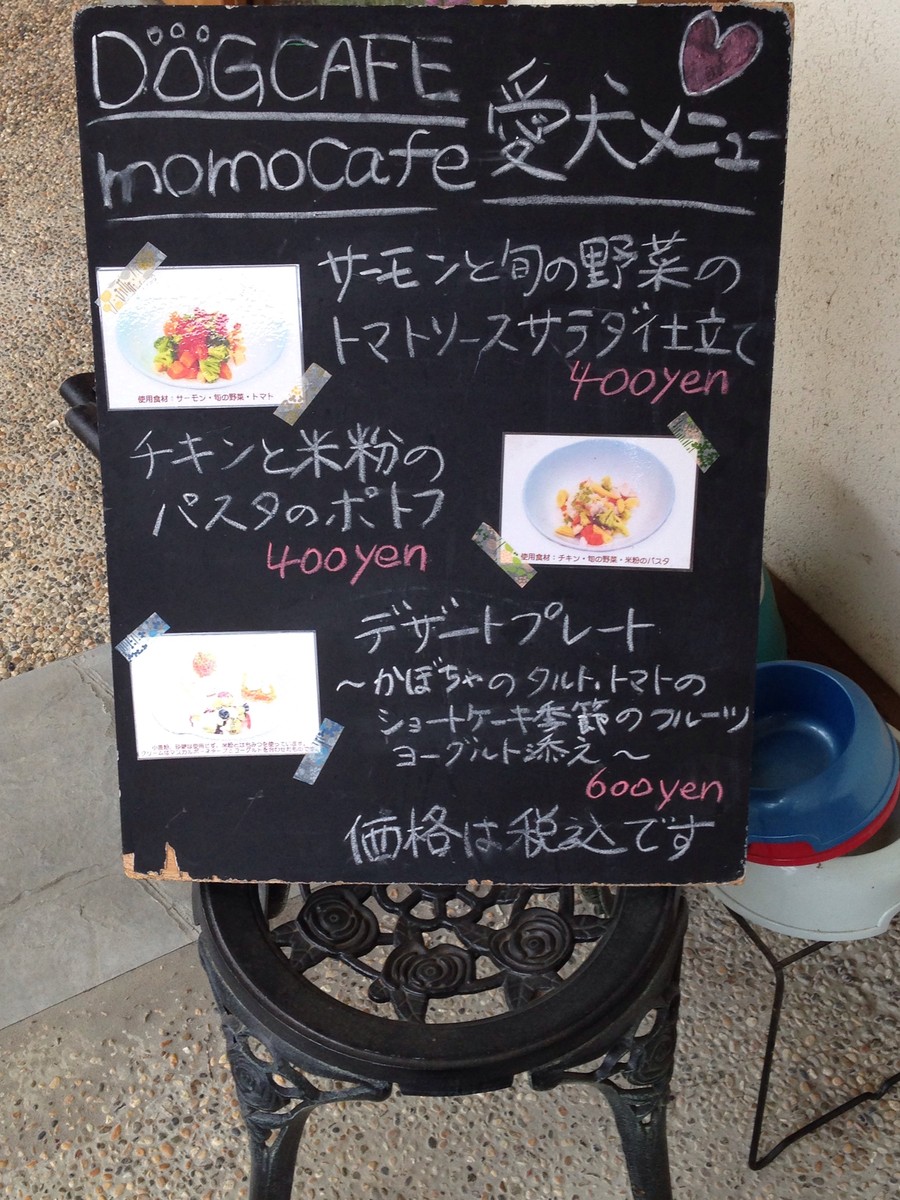 DOGCAFE
momocafe 愛犬メニュー
サーモンと旬の野菜の
トマトソースサラダ仕立て
400yen
使用食材：サーモン・旬の野菜・トマト
チキンと米粉の
パスタのポトフ
400yen
使用食材：チキン・旬の野菜・米粉のパスタ
デザートプレート
～かぼちゃのタルト、トマトの
ショートケーキ季節のフルーツ
ヨーグルト添え～
600yen
価格は税込です